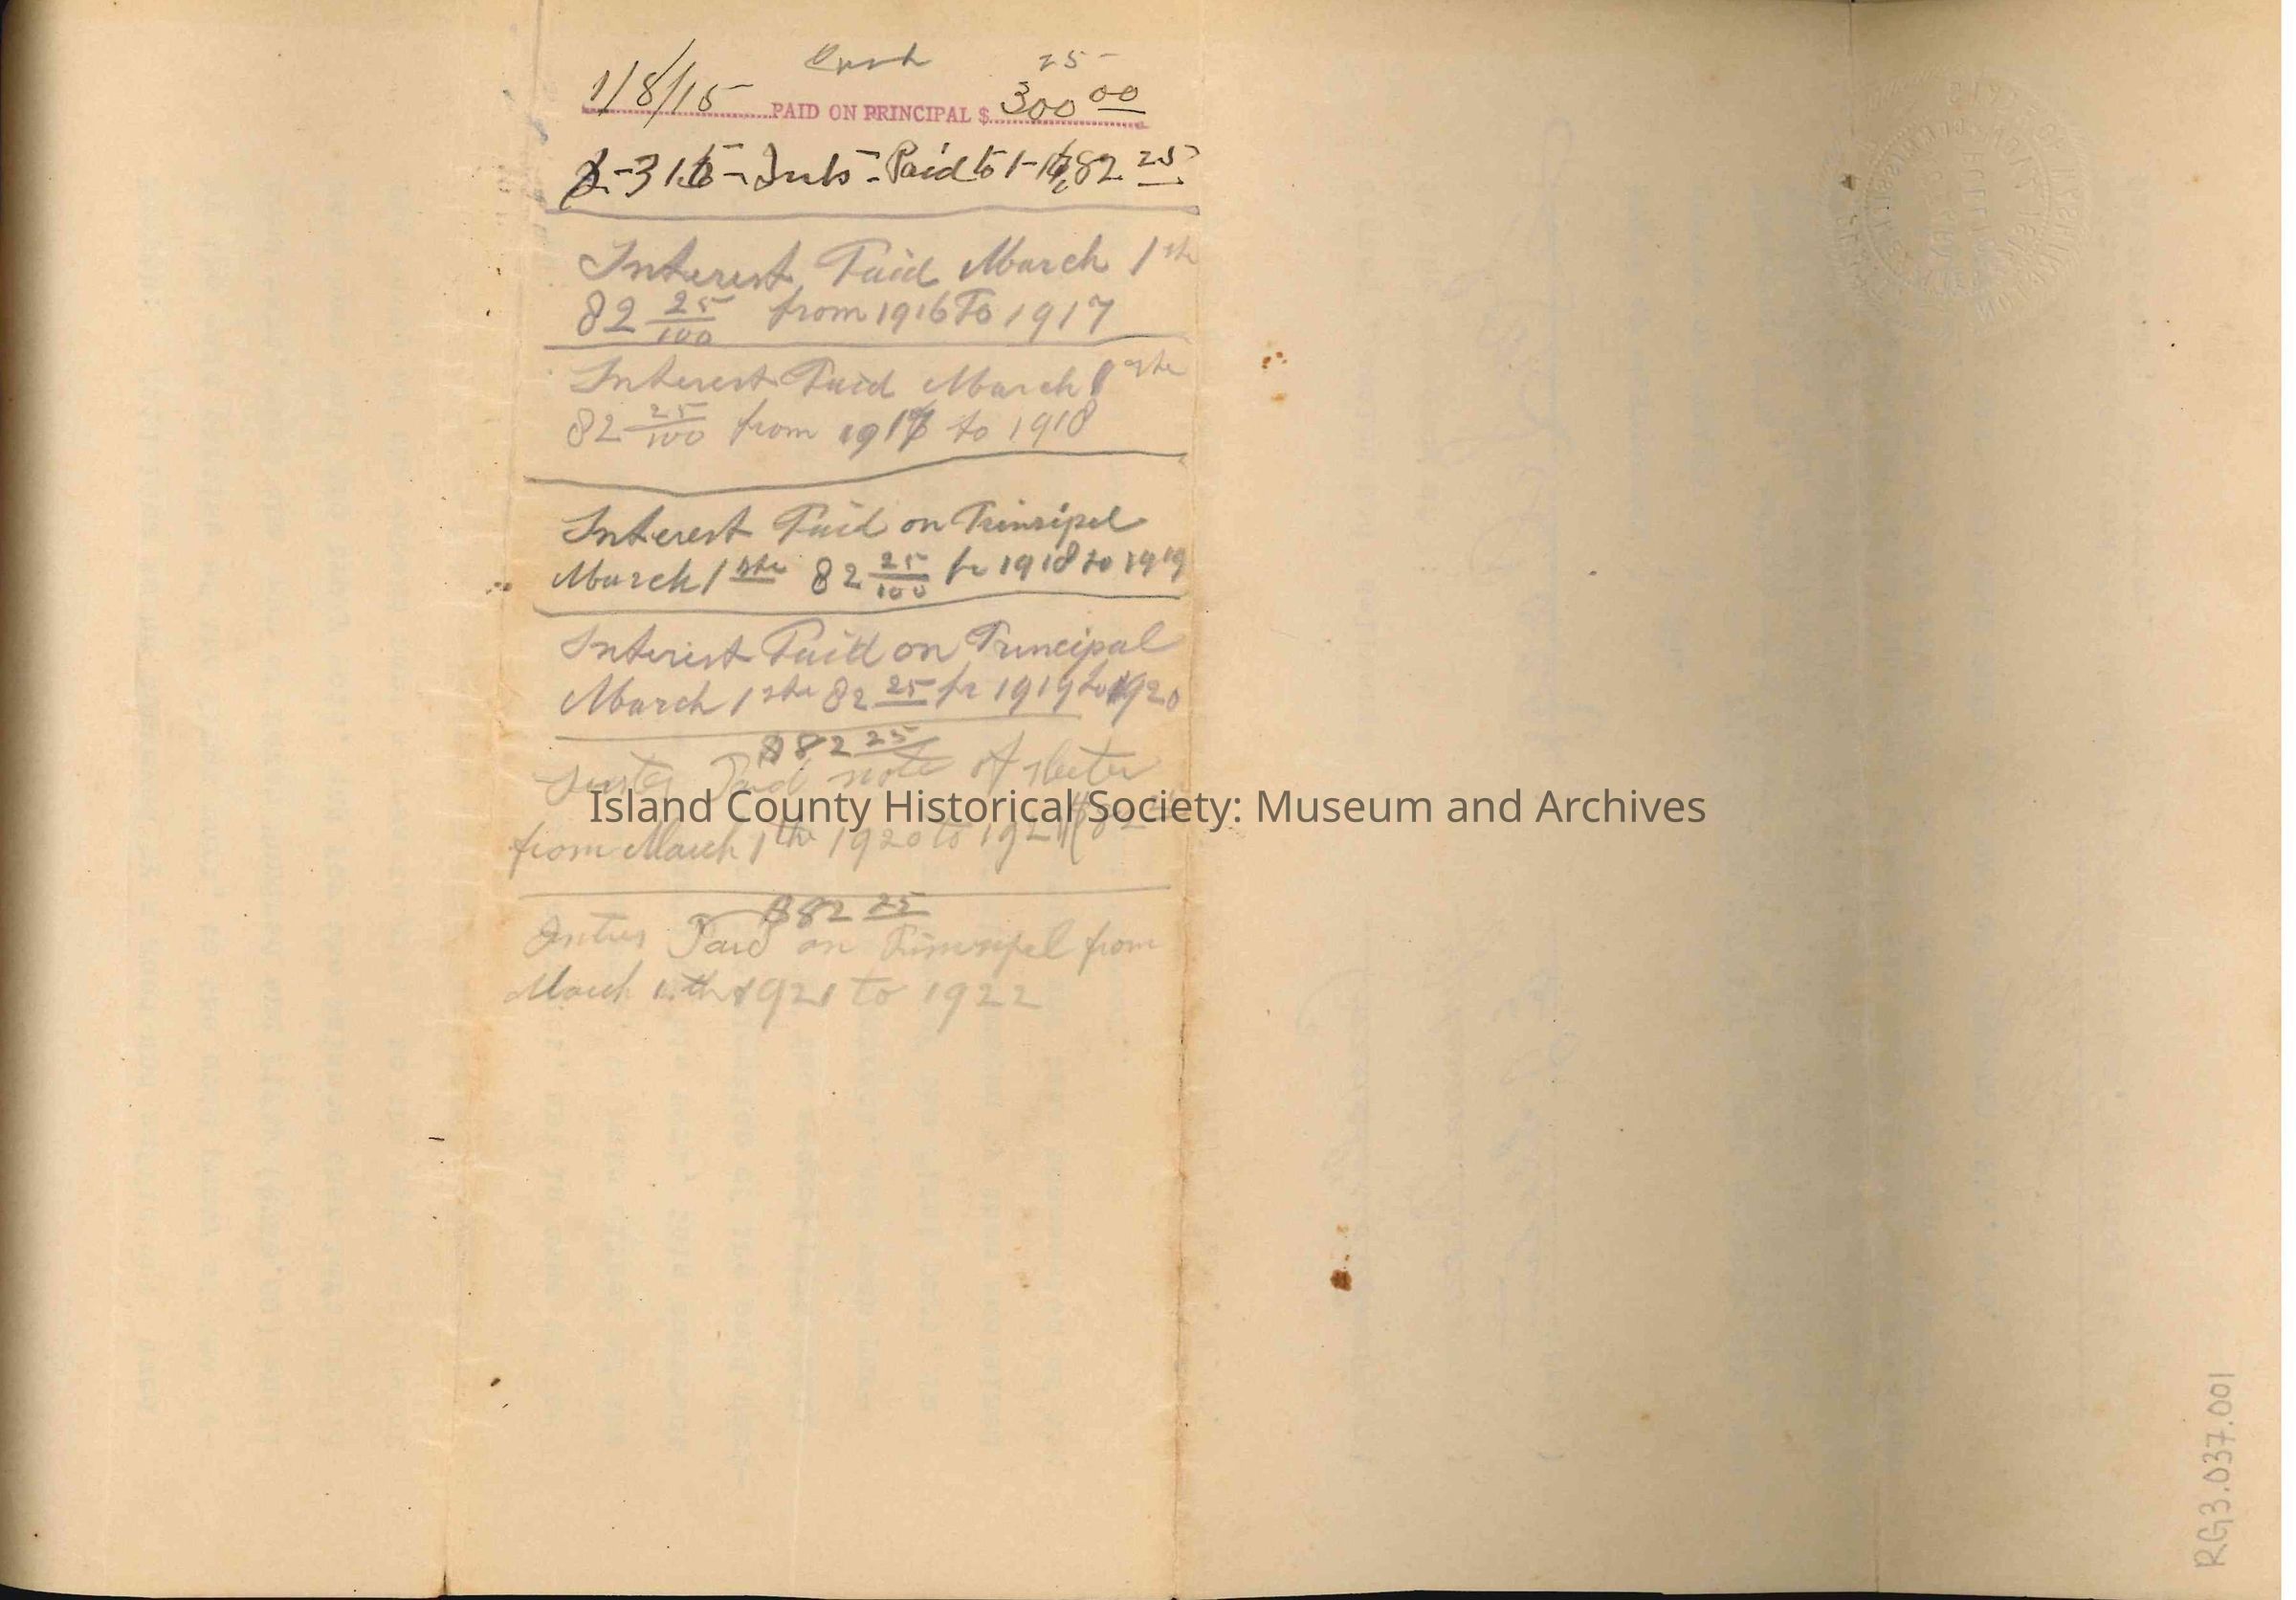 Cash 25-
1/8/15 PAID ON PRINCIPAL $ 300 00
Paid to 82 25
Interest Paid March 1 sth
82 25/100 from 1916 To 1917
Interest Paid March 1 sthe
82 25/100 from 1917 to 1918
Interest Paid on Prinsipel
March 1 sthe 82 25/100 fr 1918 to 1919
Interist Paid on Principal
March 1 sthe 82 25 fr 1919 to 1920
$82 25
Paid note of
Island County Historical Society: Museum and Archives
from March 1th 1920 to 1921 $82
$82 25
Intres Paid on Prinsipel from
March 1th 1921 to 1922
RG3.037.001